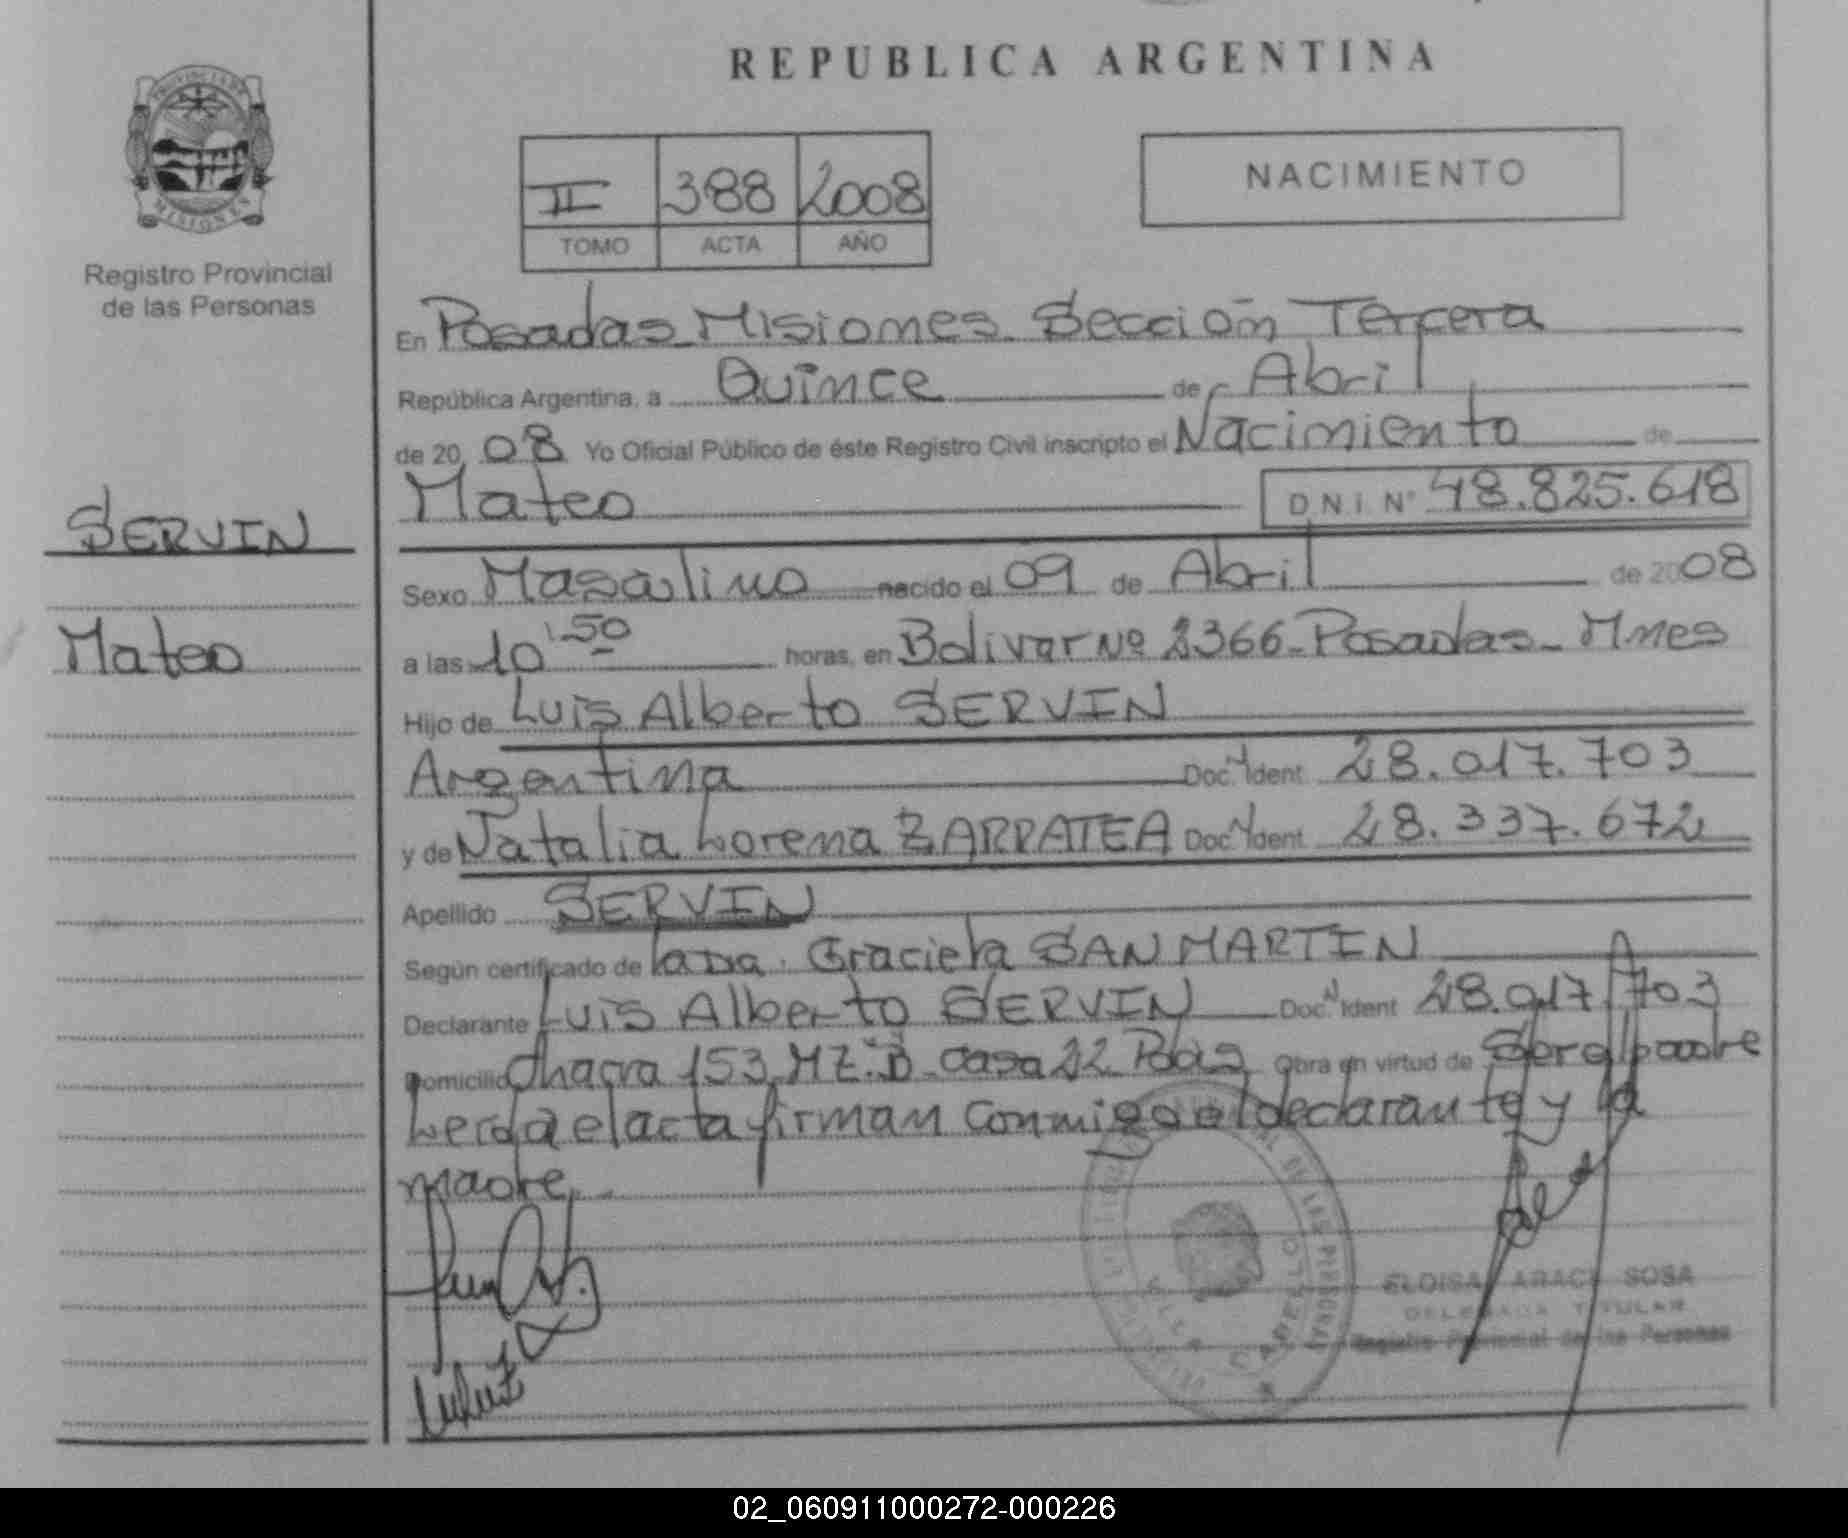 REPUBLICA ARGENTINA
PROVINCIA DE
MISIONES
Registro Provincial
de las Personas
II 388 2008
TOMO ACTA AÑO
NACIMIENTO
En Posadas Misiones Sección Tercera
República Argentina, a Quince de Abril
de 20 08 Yo Oficial Público de éste Registro Civil inscripto el Nacimiento de
Mateo D.N.I. N° 48.825.618
SERVIN
Sexo Masculino nacido el 09 de Abril de 2008
Mateo
a las 10:50 horas, en Bolivar Nº 2366 - Posadas - Mnes
Hijo de Luis Alberto SERVIN
Argentina Doc. Ident. 28.017.703
y de Natalia Lorena ZARRATEA Doc. Ident. 28.337.672
Apellido SERVIN
Según certificado de la Dra. Graciela SAN MARTIN
Declarante Luis Alberto SERVIN Doc. Ident 28.017.703
Domicilio Chacra 153 MZ. B Casa 22 Pdas Obra en virtud de Ser el padre
Leida el acta firman conmigo el declarante y la
madre.
ELOISA ARACI SOSA
DELEGADA TITULAR
Registro Provincial de las Personas
02_060911000272-000226